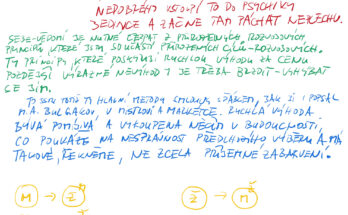 NEDOBRÉHO VSTOUPÍ TO DO PSYCHIKY
JEDINCE A ZAČNE TAM PÁCHAT NEPLECHU.
SEBE-VĚDOMÍ JE NUTNÉ ČERPAT Z PŘIROZENÝCH, ROZUMOVÝCH
PRINCIPŮ KTERÉ JSOU SOUČÁSTÍ PŘIROZENÝCH CYKLŮ-ROZUMOVÝCH.
TY PRINCIPY, KTERÉ POSKYTUJÍ RYCHLOU VÝHODU ZA CENU
POZDĚJŠÍ VÝRAZNÉ NEVÝHODY JE TŘEBA BRZDIT-VYHÝBAT
SE JIM.
TO JSOU TOTIŽ TI HLAVNÍ METODY SMLOUVY S ĎÁBLEM, JAK JI I POPSAL
M.A. BULGAKOV, V MISTROVI A MARKÉTCE. RYCHLÁ VÝHODA
BÝVÁ POMÍJIVÁ A VYKOUPENA NEČÍM V BUDOUCNOSTI,
CO POUKÁŽE NA NESPRÁVNOST PŘEDCHOZÍHO VÝBĚRU A MÁ
TAKOVÉ, ŘEKNĚME, NE ZCELA PŘÍJEMNÉ ZABARVENÍ.
M → Ž Ž → M